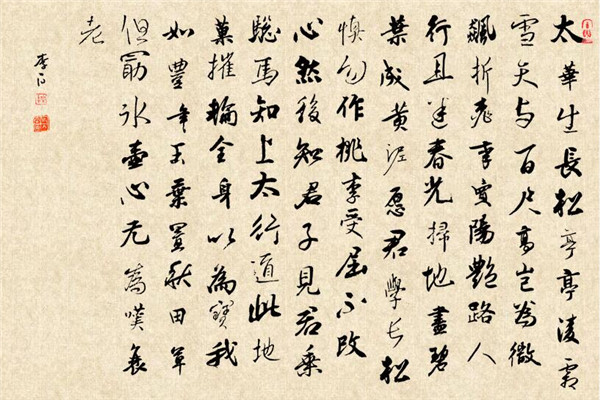 太華生長松亭亭凌霜
雪天与百尺高岂為微
飆折桃李賣陽艷路人
行且迷春光掃地盡碧
葉成黄泥愿君學长松
慎勿作桃李受屈不改
心然後知君子見君乘
驄馬知上太行道此地
菓摧輪全身以為寶我
如豐年玉棄置秋田草
但勖氷壺心无為嘆衰
老
李白